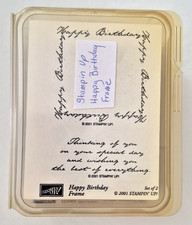 Happy Birthday
Happy Birthday
Happy Birthday
Happy Birthday
Happy Birthday
Happy Birthday
Stampin Up
Happy Birthday
Frame
© 2001 STAMPIN' UP!
Thinking of you
on your special day
and wishing you
the best of everything.
© 2001 STAMPIN' UP!
Happy Birthday
Frame
Set of 2
© 2001 STAMPIN' UP!